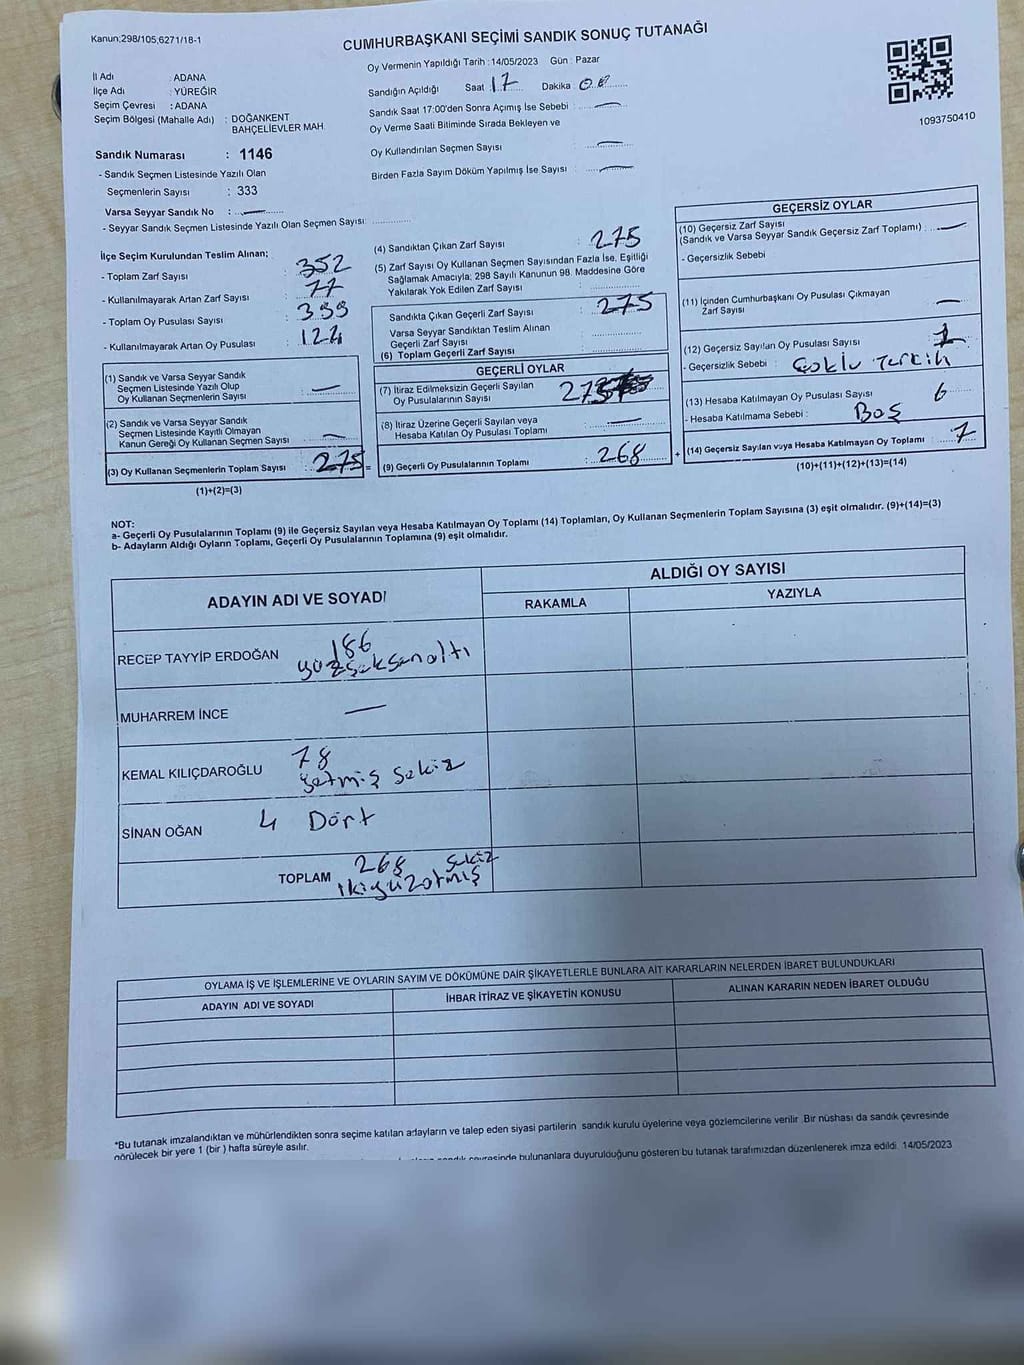 Kanun;298/105,6271/18-1
CUMHURBAŞKANI SEÇİMİ SANDIK SONUÇ TUTANAĞI
İl Adı : ADANA
İlçe Adı : YÜREĞİR
Seçim Çevresi : ADANA
Seçim Bölgesi (Mahalle Adı) : DOĞANKENT
BAHÇELİEVLER MAH.
Sandık Numarası : 1146
- Sandık Seçmen Listesinde Yazılı Olan
Seçmenlerin Sayısı : 333
Varsa Seyyar Sandık No : —
- Seyyar Sandık Seçmen Listesinde Yazılı Olan Seçmen Sayısı:
Oy Vermenin Yapıldığı Tarih : 14/05/2023 Gün : Pazar
Sandığın Açıldığı Saat : 17 Dakika : 08
Sandık Saat 17:00'den Sonra Açımış İse Sebebi : —
Oy Verme Saati Bitiminde Sırada Bekleyen ve
Oy Kullandırılan Seçmen Sayısı : —
Birden Fazla Sayım Döküm Yapılmış İse Sayısı : —
1093750410
İlçe Seçim Kurulundan Teslim Alınan;
- Toplam Zarf Sayısı : 352
- Kullanılmayarak Artan Zarf Sayısı : 77
- Toplam Oy Pusulası Sayısı : 399
- Kullanılmayarak Artan Oy Pusulası : 124
(1) Sandık ve Varsa Seyyar Sandık
Seçmen Listesinde Yazılı Olup
Oy Kullanan Seçmenlerin Sayısı : —
(2) Sandık ve Varsa Seyyar Sandık
Seçmen Listesinde Kayıtlı Olmayan
Kanun Gereği Oy Kullanan Seçmen Sayısı : —
(3) Oy Kullanan Seçmenlerin Toplam Sayısı : 275 =
(1)+(2)=(3)
(4) Sandıktan Çıkan Zarf Sayısı : 275
(5) Zarf Sayısı Oy Kullanan Seçmen Sayısından Fazla İse, Eşitliği
Sağlamak Amacıyla; 298 Sayılı Kanunun 98. Maddesine Göre
Yakılarak Yok Edilen Zarf Sayısı :
Sandıkta Çıkan Geçerli Zarf Sayısı : 275
Varsa Seyyar Sandıktan Teslim Alınan
Geçerli Zarf Sayısı
(6) Toplam Geçerli Zarf Sayısı
GEÇERLİ OYLAR
(7) İtiraz Edilmeksizin Geçerli Sayılan
Oy Pusulalarının Sayısı
(8) İtiraz Üzerine Geçerli Sayılan veya
Hesaba Katılan Oy Pusulası Toplamı : —
(9) Geçerli Oy Pusulalarının Toplamı : 268 +
GEÇERSİZ OYLAR
(10) Geçersiz Zarf Sayısı
(Sandık ve Varsa Seyyar Sandık Geçersiz Zarf Toplamı) : —
- Geçersizlik Sebebi
(11) İçinden Cumhurbaşkanı Oy Pusulası Çıkmayan
Zarf Sayısı —
(12) Geçersiz Sayılan Oy Pusulası Sayısı 1
- Geçersizlik Sebebi : Çoklu Tercih
(13) Hesaba Katılmayan Oy Pusulası Sayısı 6
- Hesaba Katılmama Sebebi : Boş
(14) Geçersiz Sayılan veya Hesaba Katılmayan Oy Toplamı : 7
(10)+(11)+(12)+(13)=(14)
NOT:
a- Geçerli Oy Pusulalarının Toplamı (9) ile Geçersiz Sayılan veya Hesaba Katılmayan Oy Toplamı (14) Toplamları, Oy Kullanan Seçmenlerin Toplam Sayısına (3) eşit olmalıdır. (9)+(14)=(3)
b- Adayların Aldığı Oyların Toplamı, Geçerli Oy Pusulalarının Toplamına (9) eşit olmalıdır.
ADAYIN ADI VE SOYADI
ALDIĞI OY SAYISI
RAKAMLA
YAZIYLA
RECEP TAYYİP ERDOĞAN 186
yüzseksenaltı
MUHARREM İNCE —
KEMAL KILIÇDAROĞLU 78
yetmiş sekiz
SİNAN OĞAN 4 Dört
TOPLAM 268 sekiz
ikiyüzatmış
OYLAMA İŞ VE İŞLEMLERİNE VE OYLARIN SAYIM VE DÖKÜMÜNE DAİR ŞİKAYETLERLE BUNLARA AİT KARARLARIN NELERDEN İBARET BULUNDUKLARI
ADAYIN ADI VE SOYADI
İHBAR İTİRAZ VE ŞİKAYETİN KONUSU
ALINAN KARARIN NEDEN İBARET OLDUĞU
*Bu tutanak imzalandıktan ve mühürlendikten sonra seçime katılan adayların ve talep eden siyasi partilerin sandık kurulu üyelerine veya gözlemcilerine verilir .Bir nüshası da sandık çevresinde
görülecek bir yere 1 (bir ) hafta süreyle asılır.
bulunanlara duyurulduğunu gösteren bu tutanak tarafımızdan düzenlenerek imza edildi. 14/05/2023